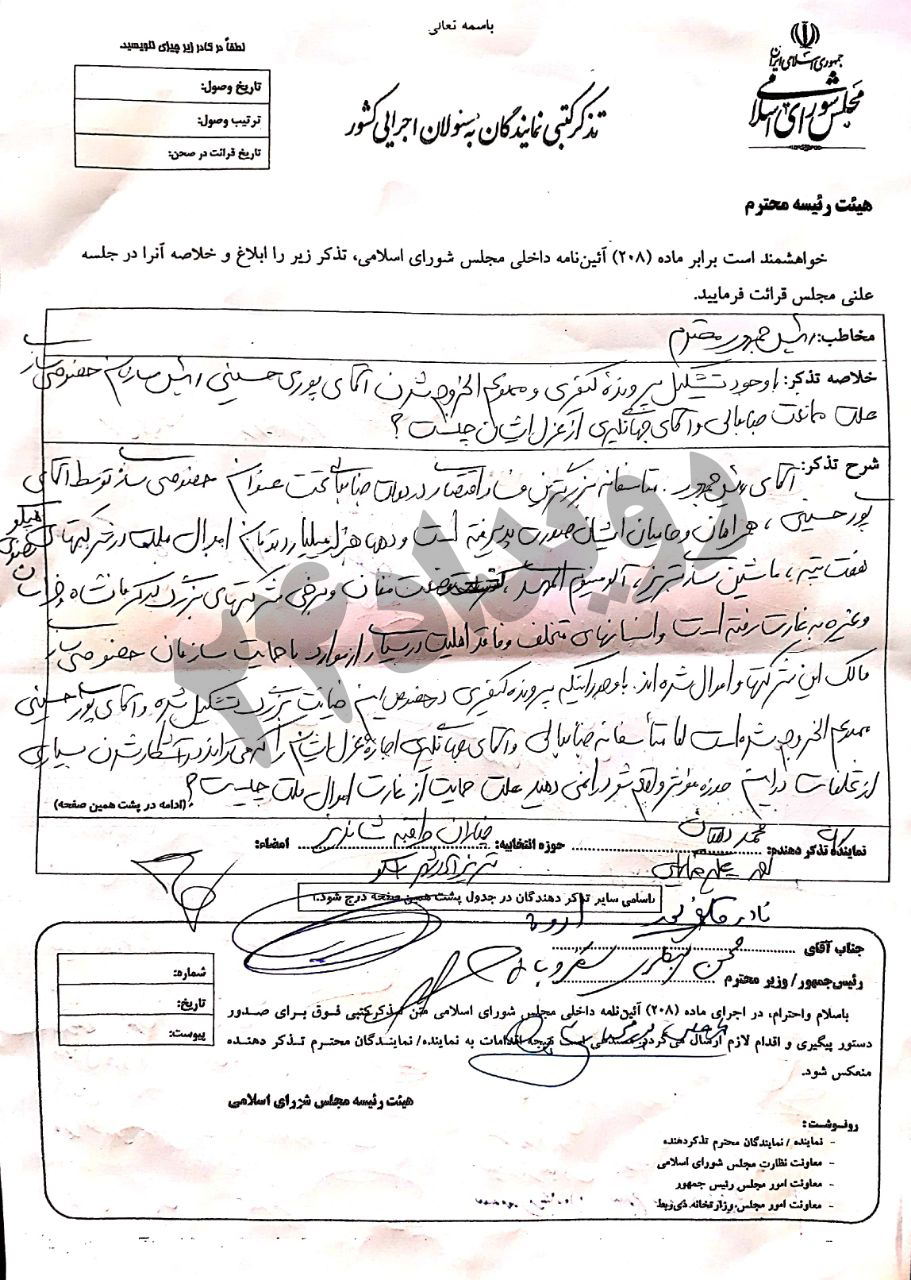 باسمه تعالی
جمهوری اسلامی ایران
مجلس شورای اسلامی
لطفاً در کادر زیر چیزی ننویسید.
تاریخ وصول:
ترتیب وصول:
تاریخ قرائت در صحن:
تذکر کتبی نمایندگان به مسئولان اجرایی کشور
هیئت رئیسه محترم
خواهشمند است برابر ماده (۲۰۸) آئین‌نامه داخلی مجلس شورای اسلامی، تذکر زیر را ابلاغ و خلاصه آنرا در جلسه
علنی مجلس قرائت فرمایید.
مخاطب: رئیس جمهور محترم
خلاصه تذکر: با وجود تشکیل پرونده کیفری و ممنوع الخروج شدن آقای پوری حسینی رئیس سازمان خصوصی سازی
علت ممانعت جنابعالی و آقای جهانگیری از عزل ایشان چیست؟
شرح تذکر: آقای رئیس جمهور. متاسفانه بزرگترین فساد اقتصادی در دولت جنابعالی تحت عنوان خصوصی سازی توسط آقای
پور حسینی، همراهان و حامیان ایشان صورت پذیرفته است و دهها هزار میلیارد تومان اموال ملت در شرکتهای
هفت تپه، ماشین سازی تبریز، آلومینیوم المهدی، کشت و صنعت مغان و برخی شرکتهای بزرگ دیگر کرمانشاه
و غیره به غارت رفته است و انسانهای متخلف و فاقد اهلیت در بسیاری از موارد با حمایت سازمان خصوصی سازی
مالک این شرکتها و اموال شده اند. با وجود اینکه پرونده کیفری در خصوص این خیانت بزرگ تشکیل شده و آقای پور حسینی
ممنوع الخروج شده است اما متأسفانه جنابعالی و آقای جهانگیری اجازه عزل ایشان را که می تواند در آشکار شدن بسیاری
از تخلفات در این حوزه مؤثر واقع شود را نمی دهید علت حمایت از غارت اموال ملت چیست؟
(ادامه در پشت همین صفحه)
نماینده تذکر دهنده: محمد دهقان حوزه انتخابیه: چناران طرقبه شاندیز امضاء:
تبریز آذرشهر اسکو
اسامی سایر تذکر دهندگان در جدول پشت همین صفحه درج شود.
نادر قاضی پور ارومیه
جناب آقای
رئیس‌جمهور/ وزیر محترم
شماره:
تاریخ:
پیوست:
باسلام واحترام، در اجرای ماده (۲۰۸) آئین‌نامه داخلی مجلس شورای اسلامی متن تذکر کتبی فوق برای صدور
دستور پیگیری و اقدام لازم ارسال می گردد. مقتضی است نتیجه اقدامات به نماینده/ نمایندگان محترم تذکر دهنده
منعکس شود.
هیئت رئیسه مجلس شورای اسلامی
رونوشت:
- نماینده / نمایندگان محترم تذکردهنده
- معاونت نظارت مجلس شورای اسلامی
- معاونت امور مجلس رئیس جمهور
- معاونت امور مجلس وزارتخانه ذی‌ربط
رویداد۲۴